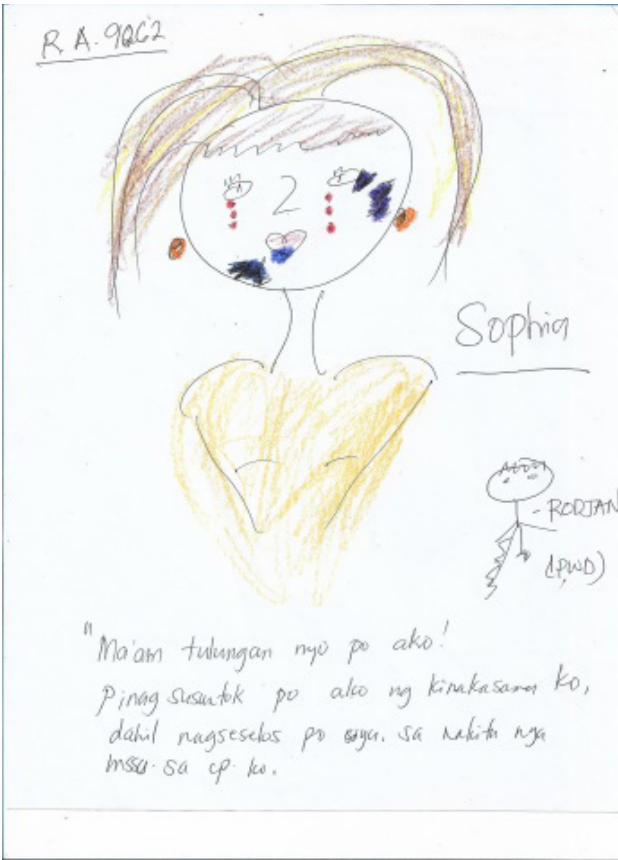 R.A. 9262
Sophia
- RODJAN
(PWD)
"Ma'am tulungan nyo po ako!
Pinag susuntok po ako ng kinakasama ko,
dahil nagseselos po sya. sa nakita nya
msg. sa cp. ko.